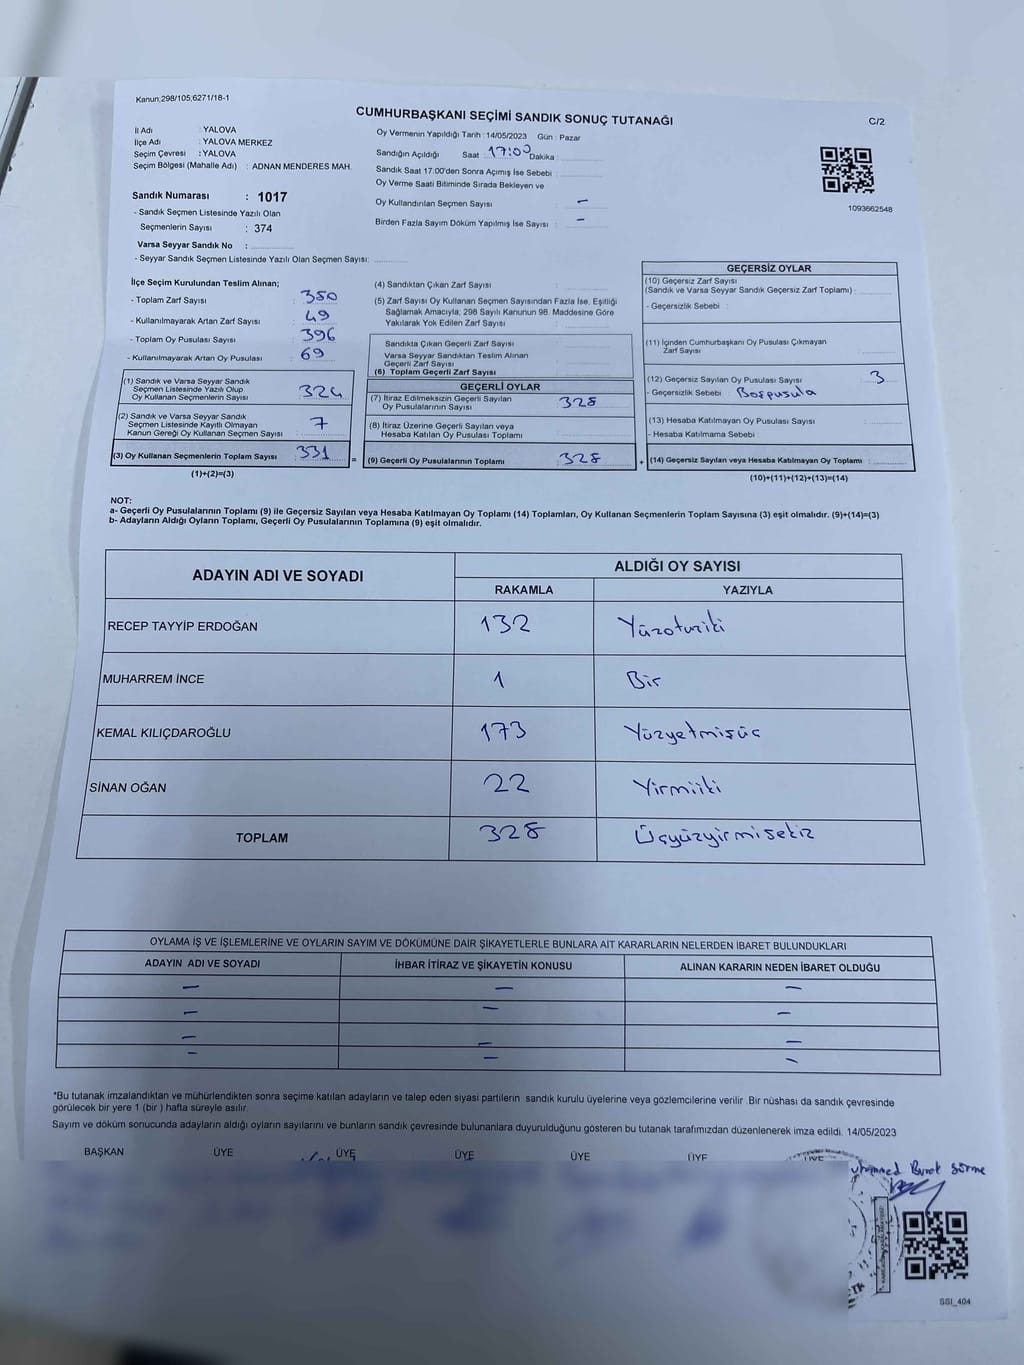 Kanun,298/105;6271/18-1
CUMHURBAŞKANI SEÇİMİ SANDIK SONUÇ TUTANAĞI
C/2
İl Adı : YALOVA
İlçe Adı : YALOVA MERKEZ
Seçim Çevresi : YALOVA
Seçim Bölgesi (Mahalle Adı) : ADNAN MENDERES MAH.
Oy Vermenin Yapıldığı Tarih : 14/05/2023 Gün : Pazar
Sandığın Açıldığı Saat 17:00 Dakika :
Sandık Saat 17:00'den Sonra Açımış İse Sebebi :
Oy Verme Saati Bitiminde Sırada Bekleyen ve
Oy Kullandırılan Seçmen Sayısı : -
Birden Fazla Sayım Döküm Yapılmış İse Sayısı : -
1093662548
Sandık Numarası : 1017
- Sandık Seçmen Listesinde Yazılı Olan
Seçmenlerin Sayısı : 374
Varsa Seyyar Sandık No :
- Seyyar Sandık Seçmen Listesinde Yazılı Olan Seçmen Sayısı:
İlçe Seçim Kurulundan Teslim Alınan;
- Toplam Zarf Sayısı : 350
- Kullanılmayarak Artan Zarf Sayısı : 49
- Toplam Oy Pusulası Sayısı : 396
- Kullanılmayarak Artan Oy Pusulası : 69
(1) Sandık ve Varsa Seyyar Sandık
Seçmen Listesinde Yazılı Olup
Oy Kullanan Seçmenlerin Sayısı : 324
(2) Sandık ve Varsa Seyyar Sandık
Seçmen Listesinde Kayıtlı Olmayan
Kanun Gereği Oy Kullanan Seçmen Sayısı : 7
(3) Oy Kullanan Seçmenlerin Toplam Sayısı : 331
(1)+(2)=(3)
(4) Sandıktan Çıkan Zarf Sayısı :
(5) Zarf Sayısı Oy Kullanan Seçmen Sayısından Fazla İse, Eşitliği
Sağlamak Amacıyla; 298 Sayılı Kanunun 98. Maddesine Göre
Yakılarak Yok Edilen Zarf Sayısı :
Sandıkta Çıkan Geçerli Zarf Sayısı :
Varsa Seyyar Sandıktan Teslim Alınan
Geçerli Zarf Sayısı :
(6) Toplam Geçerli Zarf Sayısı :
GEÇERLİ OYLAR
(7) İtiraz Edilmeksizin Geçerli Sayılan
Oy Pusulalarının Sayısı : 328
(8) İtiraz Üzerine Geçerli Sayılan veya
Hesaba Katılan Oy Pusulası Toplamı :
= (9) Geçerli Oy Pusulalarının Toplamı : 328
GEÇERSİZ OYLAR
(10) Geçersiz Zarf Sayısı
(Sandık ve Varsa Seyyar Sandık Geçersiz Zarf Toplamı) :
- Geçersizlik Sebebi :
(11) İçinden Cumhurbaşkanı Oy Pusulası Çıkmayan
Zarf Sayısı :
(12) Geçersiz Sayılan Oy Pusulası Sayısı : 3
- Geçersizlik Sebebi : Boşpusula
(13) Hesaba Katılmayan Oy Pusulası Sayısı :
- Hesaba Katılmama Sebebi :
+ (14) Geçersiz Sayılan veya Hesaba Katılmayan Oy Toplamı :
(10)+(11)+(12)+(13)=(14)
NOT:
a- Geçerli Oy Pusulalarının Toplamı (9) ile Geçersiz Sayılan veya Hesaba Katılmayan Oy Toplamı (14) Toplamları, Oy Kullanan Seçmenlerin Toplam Sayısına (3) eşit olmalıdır. (9)+(14)=(3)
b- Adayların Aldığı Oyların Toplamı, Geçerli Oy Pusulalarının Toplamına (9) eşit olmalıdır.
ADAYIN ADI VE SOYADI ALDIĞI OY SAYISI
RAKAMLA YAZIYLA
RECEP TAYYİP ERDOĞAN 132 Yüzotuziki
MUHARREM İNCE 1 Bir
KEMAL KILIÇDAROĞLU 173 Yüzyetmişüç
SİNAN OĞAN 22 Yirmiiki
TOPLAM 328 Üçyüzyirmisekiz
OYLAMA İŞ VE İŞLEMLERİNE VE OYLARIN SAYIM VE DÖKÜMÜNE DAİR ŞİKAYETLERLE BUNLARA AİT KARARLARIN NELERDEN İBARET BULUNDUKLARI
ADAYIN ADI VE SOYADI İHBAR İTİRAZ VE ŞİKAYETİN KONUSU ALINAN KARARIN NEDEN İBARET OLDUĞU
- - -
- - -
- - -
- - -
*Bu tutanak imzalandıktan ve mühürlendikten sonra seçime katılan adayların ve talep eden siyasi partilerin sandık kurulu üyelerine veya gözlemcilerine verilir .Bir nüshası da sandık çevresinde
görülecek bir yere 1 (bir ) hafta süreyle asılır.
Sayım ve döküm sonucunda adayların aldığı oyların sayılarını ve bunların sandık çevresinde bulunanlara duyurulduğunu gösteren bu tutanak tarafımızdan düzenlenerek imza edildi. 14/05/2023
BAŞKAN ÜYE ÜYE ÜYE ÜYE ÜYE ÜYE
SSI_404